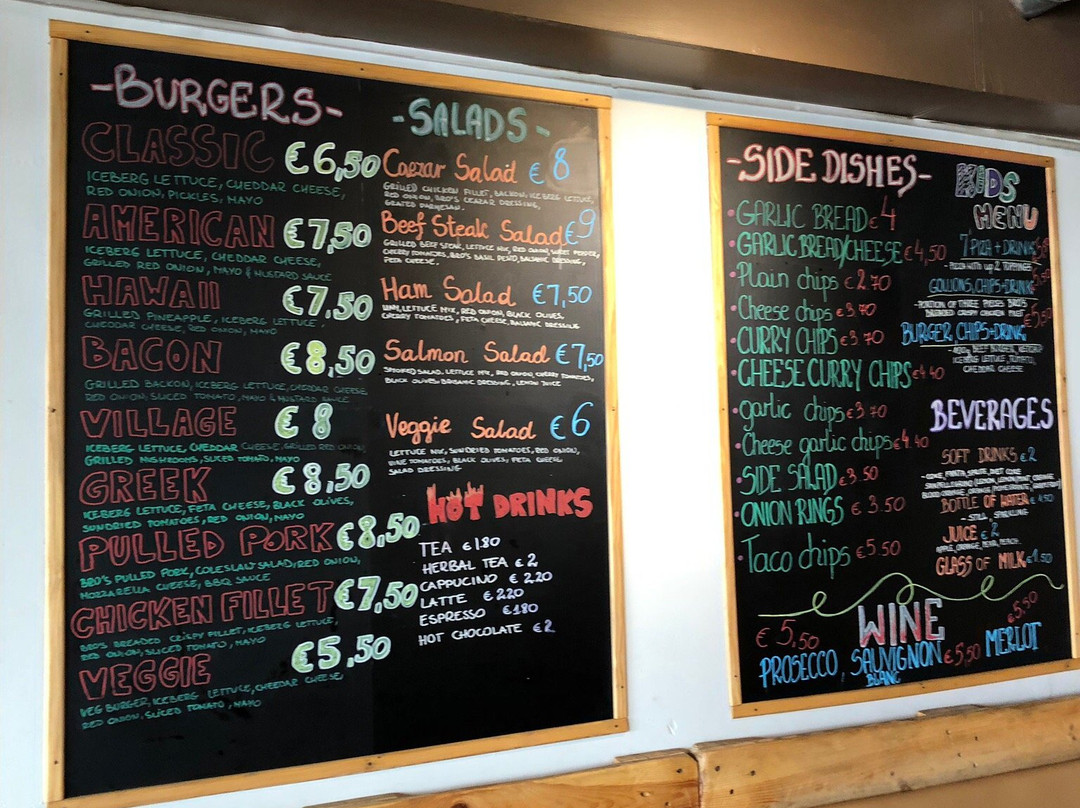 -BURGERS-
CLASSIC €6,50
ICEBERG LETTUCE, CHEDDAR CHEESE,
RED ONION, PICKLES, MAYO
AMERICAN €7,50
ICEBERG LETTUCE, CHEDDAR CHEESE,
GRILLED RED ONION, MAYO & MUSTARD SAUCE
HAWAII €7,50
GRILLED PINEAPPLE, ICEBERG LETTUCE,
CHEDDAR CHEESE, RED ONION, MAYO
BACON €8,50
GRILLED BACKON, ICEBERG LETTUCE, CHEDDAR CHEESE
RED ONION, SLICED TOMATO, MAYO & MUSTARD SAUCE
VILLAGE €8
ICEBERG LETTUCE, CHEDDAR CHEESE, GRILLED RED ONION,
GRILLED MUSHROOMS, SLICED TOMATO, MAYO
GREEK €8,50
ICEBERG LETTUCE, FETA CHEESE, BLACK OLIVES,
SUNDRIED TOMATOES, RED ONION, MAYO
PULLED PORK €8,50
BRO'S PULLED PORK, COLESLAW SALAD, RED ONION,
MOZZARELLA CHEESE, BBQ SAUCE
CHICKEN FILLET €7,50
BRO'S BREADED CRISPY FILLET, ICEBERG LETTUCE,
RED ONION, SLICED TOMATO, MAYO
VEGGIE €5,50
VEG BURGER, ICEBERG LETTUCE, CHEDDAR CHEESE,
RED ONION, SLICED TOMATO, MAYO
-SALADS-
Caezar Salad €8
GRILLED CHICKEN FILLET, BACKON, ICEBERG LETTUCE,
RED ONION, BRO'S CEAZAR DRESSING,
GRATED PARMESAN.
Beef Steak Salad €9
GRILLED BEEF STEAK, LETTUCE MIX, RED ONION, SWEET PEPPER,
CHERRY TOMATOES, BRO'S BASIL PESTO, BALSAMIC DRESSING,
FETA CHEESE.
Ham Salad €7,50
HAM, LETTUCE MIX, RED ONION, BLACK OLIVES,
CHERRY TOMATOES, FETA CHEESE, BALSAMIC DRESSING
Salmon Salad €7,50
SMOKED SALAD, LETTUCE MIX, RED ONION, CHERRY TOMATOES,
BLACK OLIVES, DRESSING, LEMON JUICE
Veggie Salad €6
LETTUCE MIX, SUNDRIED TOMATOES, RED ONION,
TOMATOES, BLACK OLIVES, FETA CHEESE,
SALAD DRESSING
HOT DRINKS
TEA €1.80
HERBAL TEA €2
CAPPUCINO €2.20
LATTE €2.20
ESPRESSO €1.80
HOT CHOCOLATE €2
-SIDE DISHES-
•GARLIC BREAD €4
•GARLIC BREAD/CHEESE €4,50
•Plain chips €2.70
Cheese chips €3.70
•CURRY CHIPS €3.70
•CHEESE CURRY CHIPS €4.40
•garlic chips €3.70
•Cheese garlic chips €4.40
•SIDE SALAD €3.50
•ONION RINGS €3.50
•Taco chips €5.50
KIDS
MENU
7" PIZZA + DRINK
- PIZZA WITH UP 2 TOPPINGS
GOUJONS, CHIPS+DRINK
- PORTION OF THREE PIECES BRO'S
BREADED CRISPY CHICKEN
BURGER, CHIPS+DRINK €5,50
BEEF BURGER, KETCHUP
ICEBERG LETTUCE, TOMATO,
CHEDDAR CHEESE
BEVERAGES
SOFT DRINKS €2
- COKE, FANTA, SPRITE, DIET COKE
BOTTLE OF WATER €1,50
- STILL, SPARKLING
JUICE €2
APPLE, ORANGE, PEAR, PEACH
GLASS OF MILK €1.50
WINE
€5,50 PROSECCO, SAUVIGNON €5,50 MERLOT €5,50
BLANC